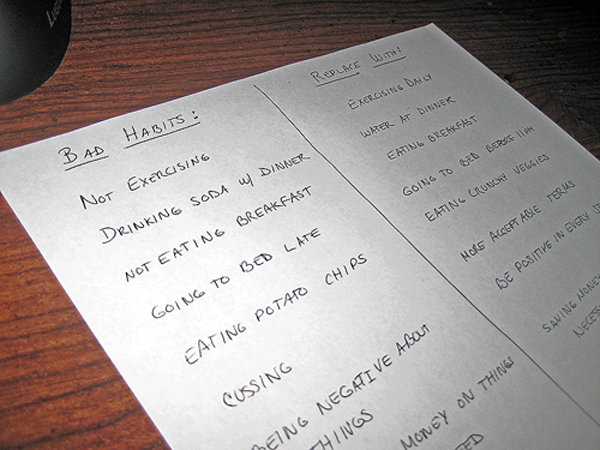 BAD HABITS:
NOT EXERCISING
DRINKING SODA W/ DINNER
NOT EATING BREAKFAST
GOING TO BED LATE
EATING POTATO CHIPS
CUSSING
BEING NEGATIVE ABOUT
THINGS
MONEY ON THINGS
REPLACE WITH:
EXERCISING DAILY
WATER AT DINNER
EATING BREAKFAST
GOING TO BED BEFORE 11PM
EATING CRUNCHY VEGGIES
MORE ACCEPTABLE TERMS
BE POSITIVE IN EVERY
SAVING MONEY